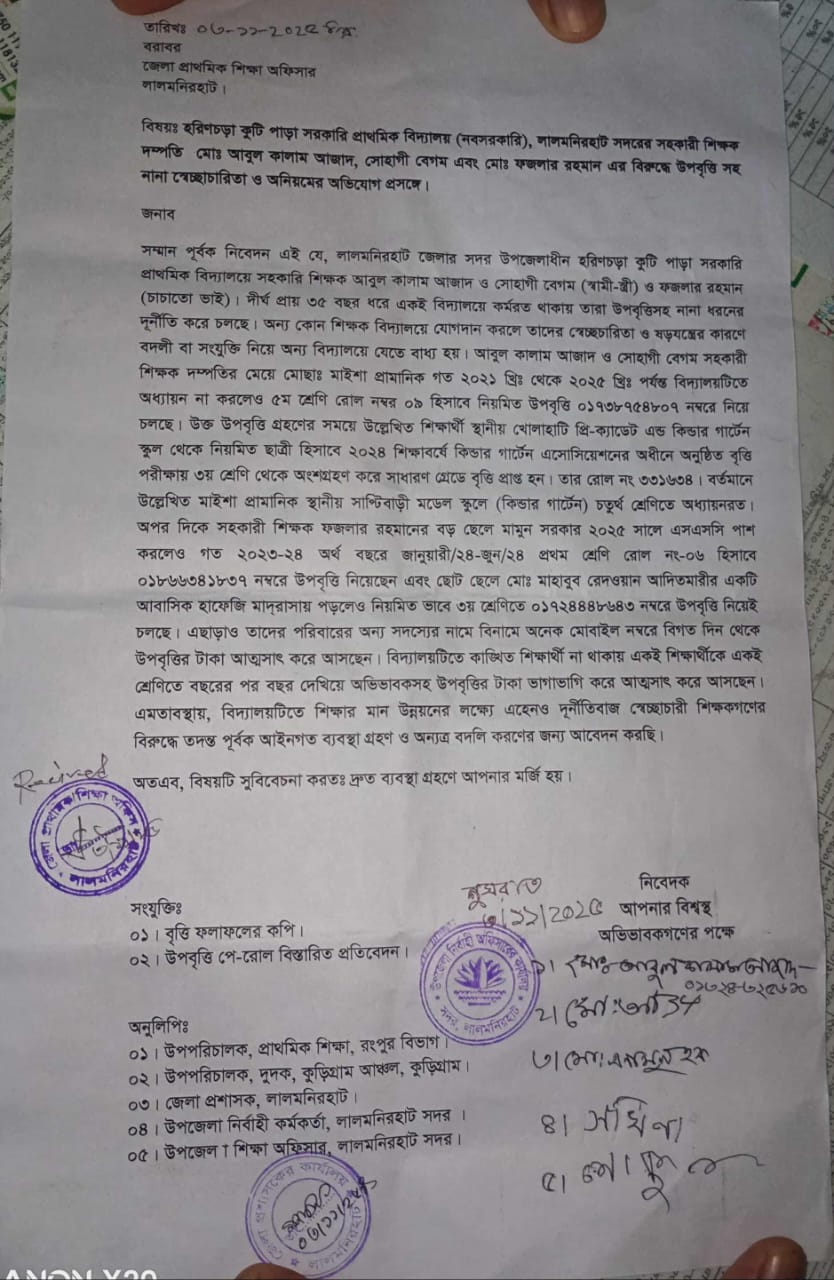 তারিখঃ ০৬-১১-২০২৫ খ্রি.
বরাবর
জেলা প্রাথমিক শিক্ষা অফিসার
লালমনিরহাট।
বিষয়ঃ হরিণচড়া কুটি পাড়া সরকারি প্রাথমিক বিদ্যালয় (নবসরকারি), লালমনিরহাট সদরের সহকারী শিক্ষক
দম্পতি মোঃ আবুল কালাম আজাদ, সোহাগী বেগম এবং মোঃ ফজলার রহমান এর বিরুদ্ধে উপবৃত্তি সহ
নানা স্বেচ্ছাচারিতা ও অনিয়মের অভিযোগ প্রসঙ্গে।
জনাব
সম্মান পূর্বক নিবেদন এই যে, লালমনিরহাট জেলার সদর উপজেলাধীন হরিণচড়া কুটি পাড়া সরকারি
প্রাথমিক বিদ্যালয়ে সহকারি শিক্ষক আবুল কালাম আজাদ ও সোহাগী বেগম (স্বামী-স্ত্রী) ও ফজলার রহমান
(চাচাতো ভাই)। দীর্ঘ প্রায় ৩৫ বছর ধরে একই বিদ্যালয়ে কর্মরত থাকায় তারা উপবৃত্তিসহ নানা ধরনের
দূর্নীতি করে চলছে। অন্য কোন শিক্ষক বিদ্যালয়ে যোগদান করলে তাদের স্বেচ্ছাচারিতা ও ষড়যন্ত্রের কারণে
বদলী বা সংযুক্তি নিয়ে অন্য বিদ্যালয়ে যেতে বাধ্য হয়। আবুল কালাম আজাদ ও সোহাগী বেগম সহকারী
শিক্ষক দম্পতির মেয়ে মোছাঃ মাইশা প্রামানিক গত ২০২১ খ্রিঃ থেকে ২০২৫ খ্রিঃ পর্যন্ত বিদ্যালয়টিতে
অধ্যায়ন না করলেও ৫ম শ্রেণি রোল নম্বর ০৯ হিসাবে নিয়মিত উপবৃত্তি ০১৭৩৮৭৫৪৮০৭ নম্বরে নিয়ে
চলছে। উক্ত উপবৃত্তি গ্রহণের সময়ে উল্লেখিত শিক্ষার্থী স্থানীয় খোলাহাটি প্রি-ক্যাডেট এন্ড কিন্ডার গার্টেন
স্কুল থেকে নিয়মিত ছাত্রী হিসাবে ২০২৪ শিক্ষাবর্ষে কিন্ডার গার্টেন এসোসিয়েশনের অধীনে অনুষ্ঠিত বৃত্তি
পরীক্ষায় ৩য় শ্রেণি থেকে অংশগ্রহণ করে সাধারণ গ্রেডে বৃত্তি প্রাপ্ত হন। তার রোল নং ৩৩১৬৩৪। বর্তমানে
উল্লেখিত মাইশা প্রামানিক স্থানীয় সাপ্টিবাড়ী মডেল স্কুলে (কিন্ডার গার্টেন) চতুর্থ শ্রেণিতে অধ্যায়নরত।
অপর দিকে সহকারী শিক্ষক ফজলার রহমানের বড় ছেলে মামুন সরকার ২০২৫ সালে এসএসসি পাশ
করলেও গত ২০২৩-২৪ অর্থ বছরে জানুয়ারী/২৪-জুন/২৪ প্রথম শ্রেণি রোল নং-০৬ হিসাবে
০১৮৬৬৩৪১৮৩৭ নম্বরে উপবৃত্তি নিয়েছেন এবং ছোট ছেলে মোঃ মাহাবুব রেদওয়ান আদিতমারীর একটি
আবাসিক হাফেজি মাদ্রাসায় পড়লেও নিয়মিত ভাবে ৩য় শ্রেণিতে ০১৭২৪৪৪৮৬৪৩ নম্বরে উপবৃত্তি নিয়েই
চলছে। এছাড়াও তাদের পরিবারের অন্য সদস্যের নামে বিনামে অনেক মোবাইল নম্বরে বিগত দিন থেকে
উপবৃত্তির টাকা আত্মসাৎ করে আসছেন। বিদ্যালয়টিতে কাঙ্খিত শিক্ষার্থী না থাকায় একই শিক্ষার্থীকে একই
শ্রেণিতে বছরের পর বছর দেখিয়ে অভিভাবকসহ উপবৃত্তির টাকা ভাগাভাগি করে আত্মসাৎ করে আসছেন।
এমতাবস্থায়, বিদ্যালয়টিতে শিক্ষার মান উন্নয়নের লক্ষ্যে এহেনও দূর্নীতিবাজ স্বেচ্ছাচারী শিক্ষকগণের
বিরুদ্ধে তদন্ত পূর্বক আইনগত ব্যবস্থা গ্রহণ ও অন্যত্র বদলি করণের জন্য আবেদন করছি।
অতএব, বিষয়টি সুবিবেচনা করতঃ দ্রুত ব্যবস্থা গ্রহণে আপনার মর্জি হয়।
Received
জেলা প্রাথমিক শিক্ষা অফিস
লালমনিরহাট
নিবেদক
আপনার বিশ্বস্থ
অভিভাবকগণের পক্ষে
সংযুক্তিঃ
০১। বৃত্তি ফলাফলের কপি।
০২। উপবৃত্তি পে-রোল বিস্তারিত প্রতিবেদন।
৬/১১/২০২৫
উপজেলা নির্বাহী অফিসারের কার্যালয়
সদর, লালমনিরহাট
১। মোঃ আবুল কালাম আজাদ
২। মোঃ
৩। মোঃ এনামুল হক
৪। সখিনা
৫।
অনুলিপিঃ
০১। উপপরিচালক, প্রাথমিক শিক্ষা, রংপুর বিভাগ।
০২। উপপরিচালক, দুদক, কুড়িগ্রাম আঞ্চল, কুড়িগ্রাম।
০৩। জেলা প্রশাসক, লালমনিরহাট।
০৪। উপজেলা নির্বাহী কর্মকর্তা, লালমনিরহাট সদর।
০৫। উপজেলা শিক্ষা অফিসার, লালমনিরহাট সদর।
জেলা প্রশাসকের কার্যালয়
০৬/১১/২৫
লালমনিরহাট